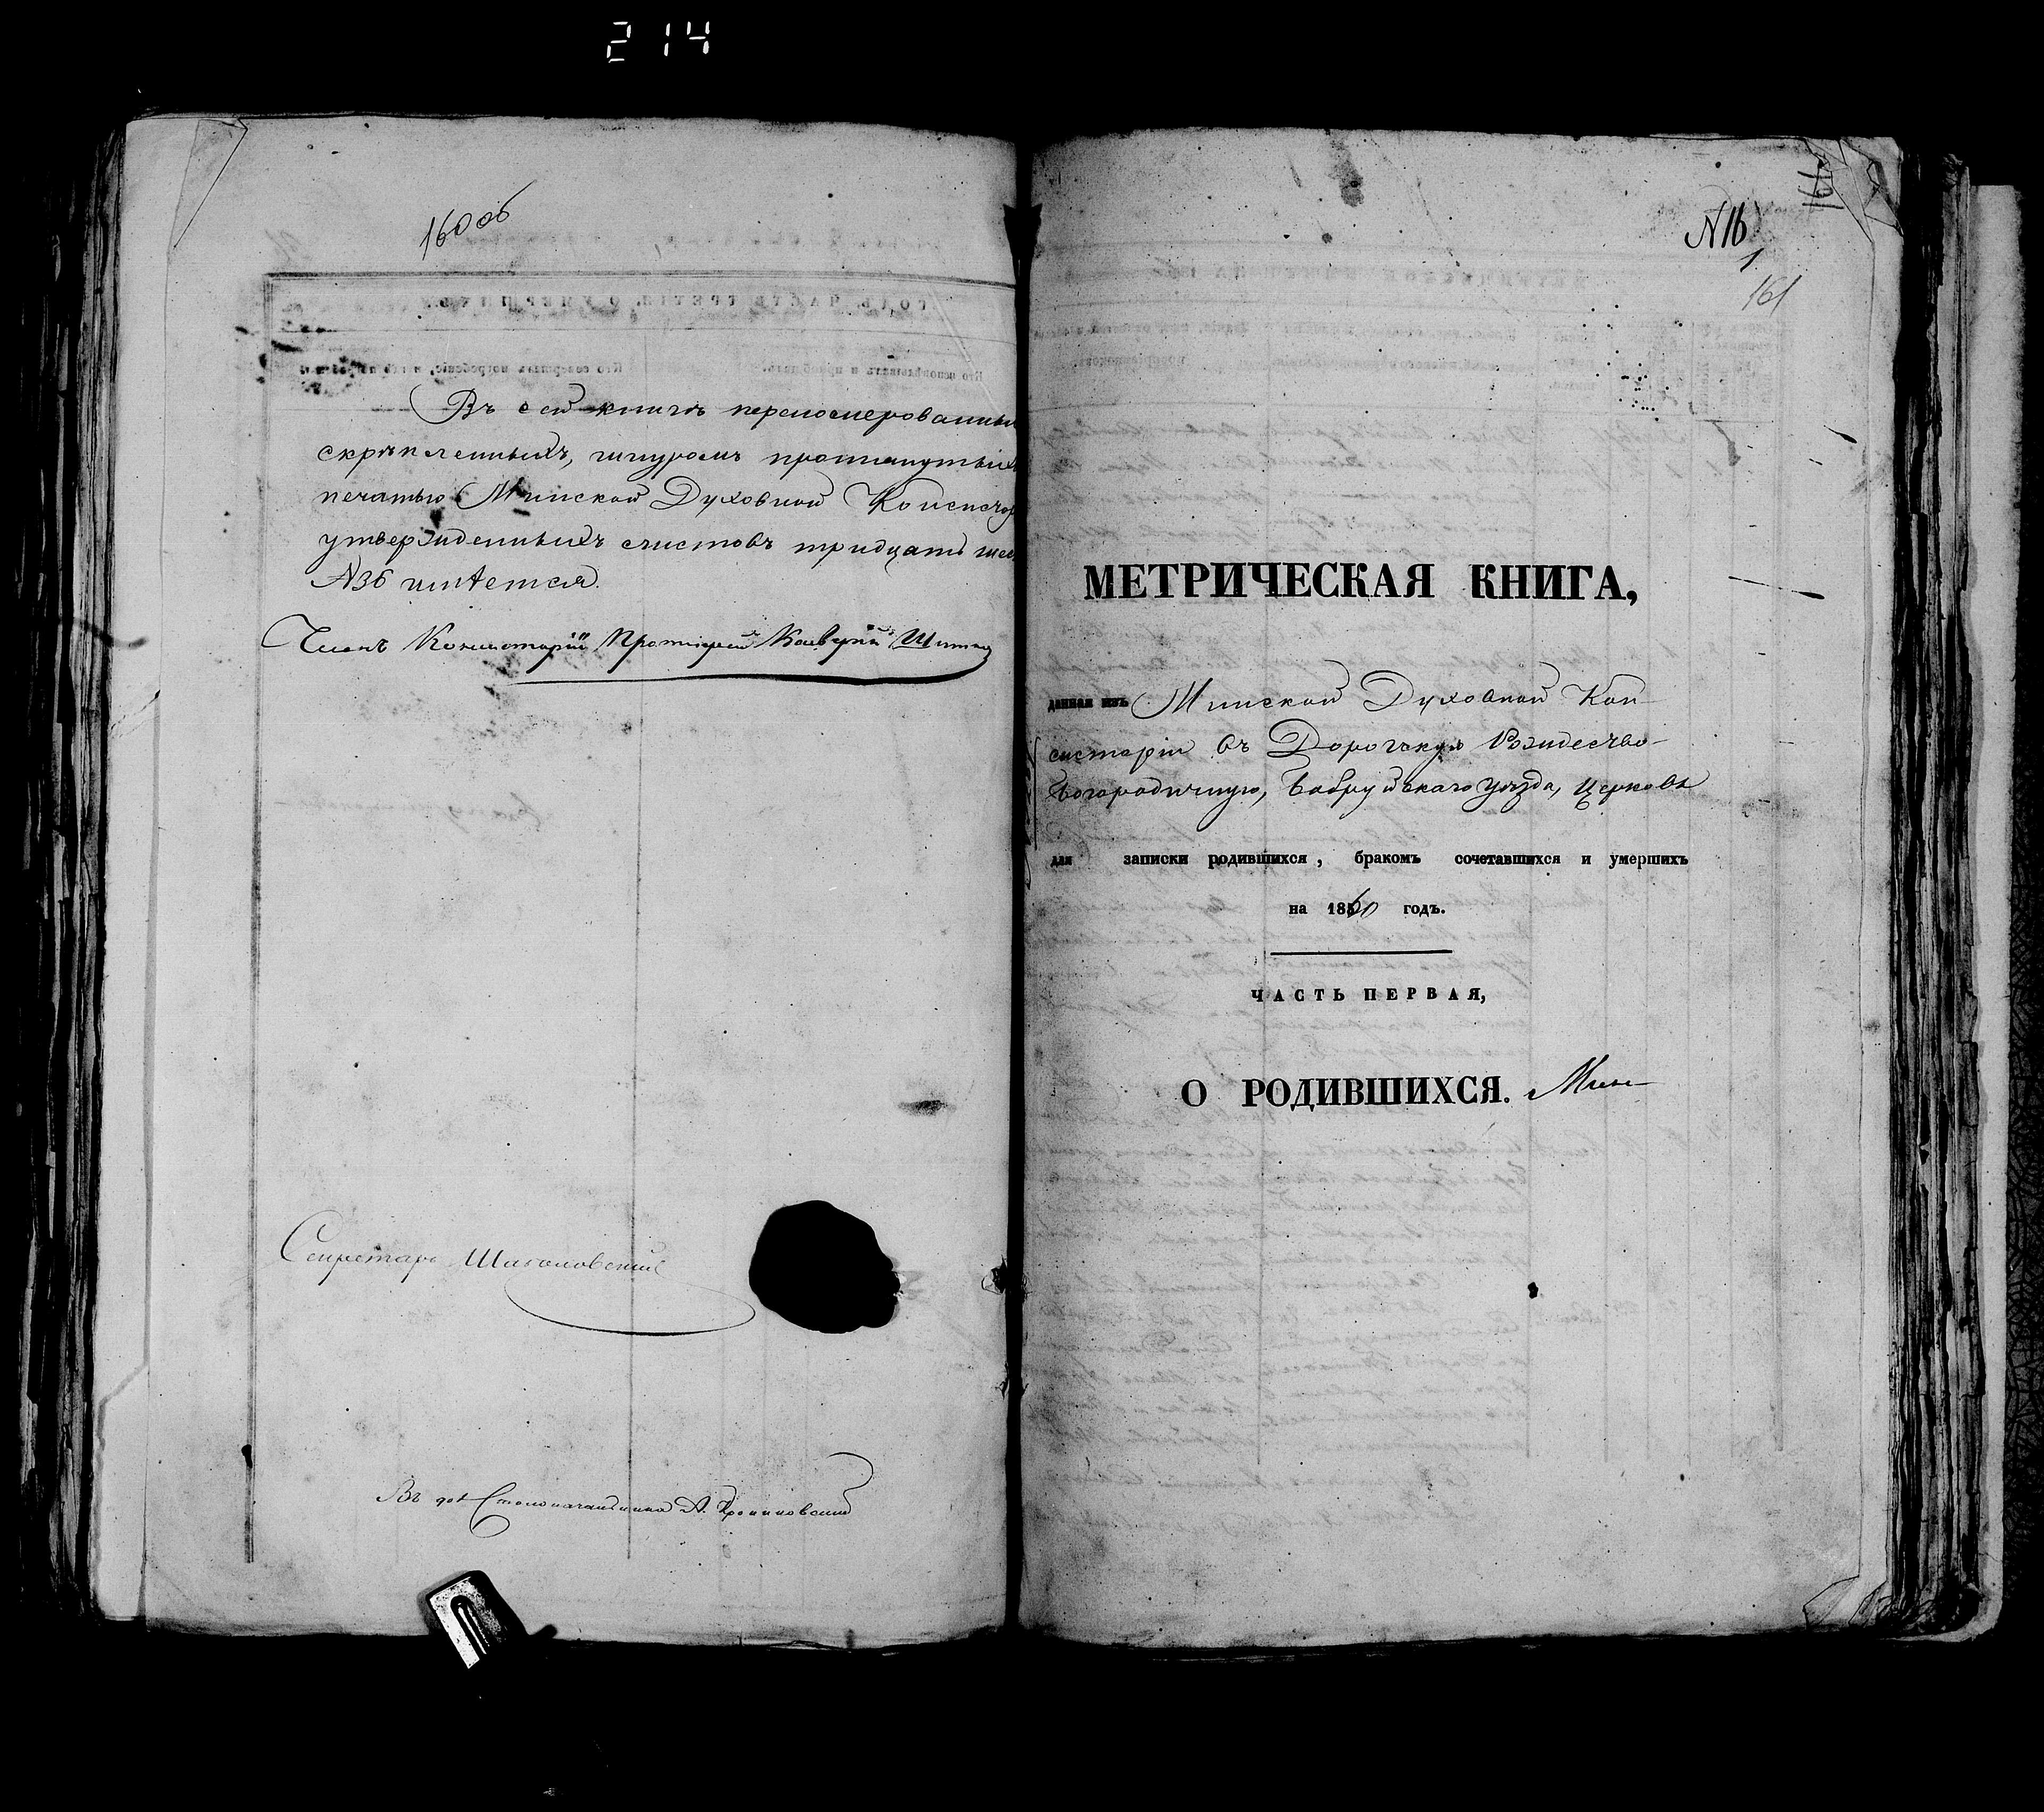 214
160 об
Въ сей книгѣ перенумерованны
скрѣпленныхъ, шнуромъ протянутыхъ
печатью Минской Духовной Консистор
утвержденныхъ листовъ тридцать шес
№36 имѣется.
Членъ Консисторіи Протоіерей
Секретарь
Въ дол Столоначальника А.
161
N16
1
161
МЕТРИЧЕСКАЯ КНИГА,
данная изъ Минской Духовной Кон-
систоріи въ Дорогскую Рождество-
Богородичную, Бобруйскаго уѣзда, Церковь
для записки родившихся, бракомъ сочетавшихся и умершихъ
на 1860 годъ.
ЧАСТЬ ПЕРВАЯ,
О РОДИВШИХСЯ.